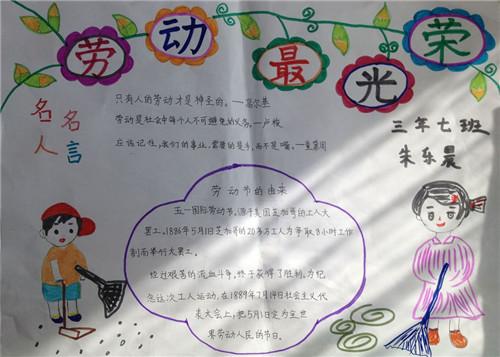 劳动最光荣
名人名言
只有人的劳动才是神圣的。—高尔基
劳动是社会中每个人不可避免的义务。—卢梭
应该记住，我们的事业，需要的是手，而不是嘴。—童第周
三年七班
朱乐晨
劳动节的由来
五一国际劳动节，源于美国芝加哥的工人大
罢工。1886年5月1日芝加哥的20多万工人为争取8小时工作
制而举行大罢工。
经过艰苦的流血斗争，终于获得了胜利。为纪
念这次工人运动，在1889年7月14日社会主义代
表大会上，把5月1日定为全世
界劳动人民的节日。